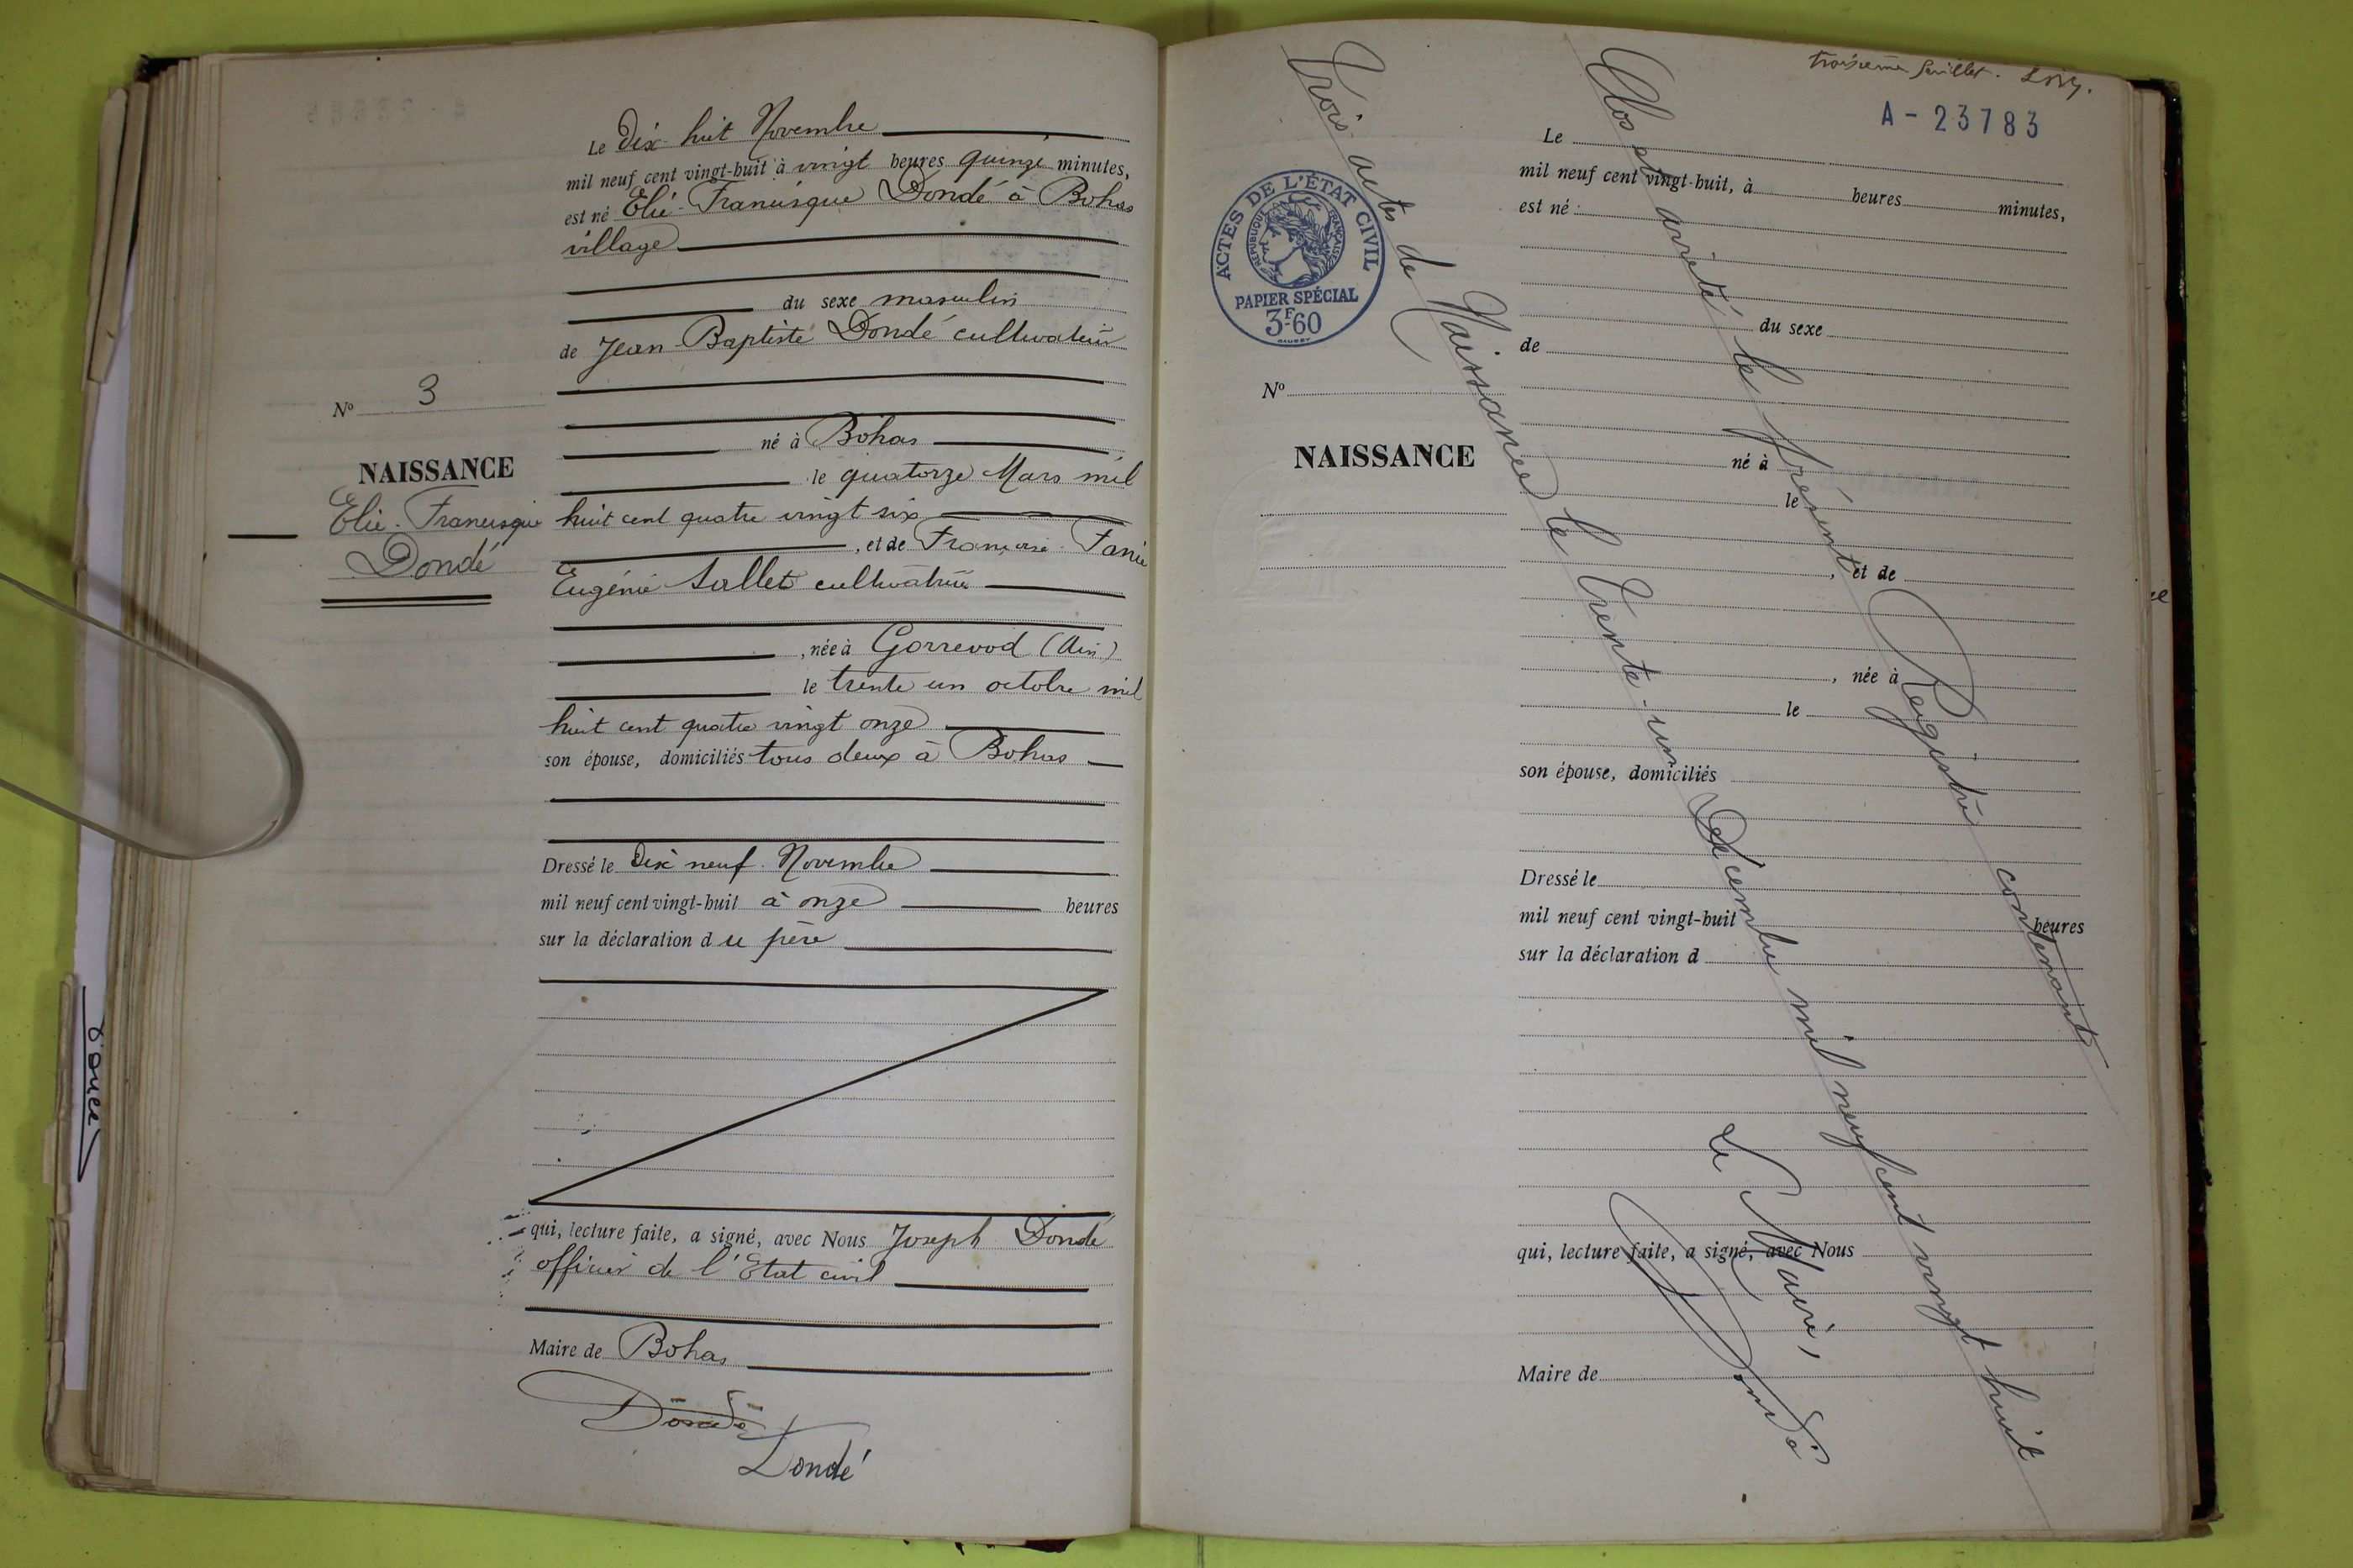 Le Dix huit Novembre
mil neuf cent vingt-huit à vingt heures quinze minutes,
est né Elie Francisque Dondé à Bohas
village
du sexe masculin
de Jean Baptiste Dondé cultivateur
né à Bohas
le quatorze Mars mil
huit cent quatre vingt six
, et de Françoise Fanie
Eugénie Sallet cultivatrice
, née à Gorrevod (Ain)
le trente un octobre mil
huit cent quatre vingt onze
son épouse, domiciliés tous deux à Bohas
Dressé le Dix neuf Novembre
mil neuf cent vingt-huit à onze heures
sur la déclaration du père
qui, lecture faite, a signé, avec Nous Joseph Dondé
officier de l'Etat civil
Maire de Bohas
Dondé
Dondé
No 3
NAISSANCE
Elie Francisque
Dondé
troisième feuillet.
A-23783
ACTES DE L'ÉTAT CIVIL
RÉPUBLIQUE FRANÇAISE
PAPIER SPÉCIAL
3F60
No
NAISSANCE
Le
mil neuf cent vingt-huit, à heures minutes,
est né
du sexe
de
né à
le
, et de
, née à
le
son épouse, domiciliés
Dressé le
mil neuf cent vingt-huit heures
sur la déclaration d
qui, lecture faite, a signé, avec Nous
Maire de
Clos et arrêté le présent Registre contenant
Trois actes de Naissance le trente-un Décembre mil neuf cent vingt huit
Le Maire,
Dondé